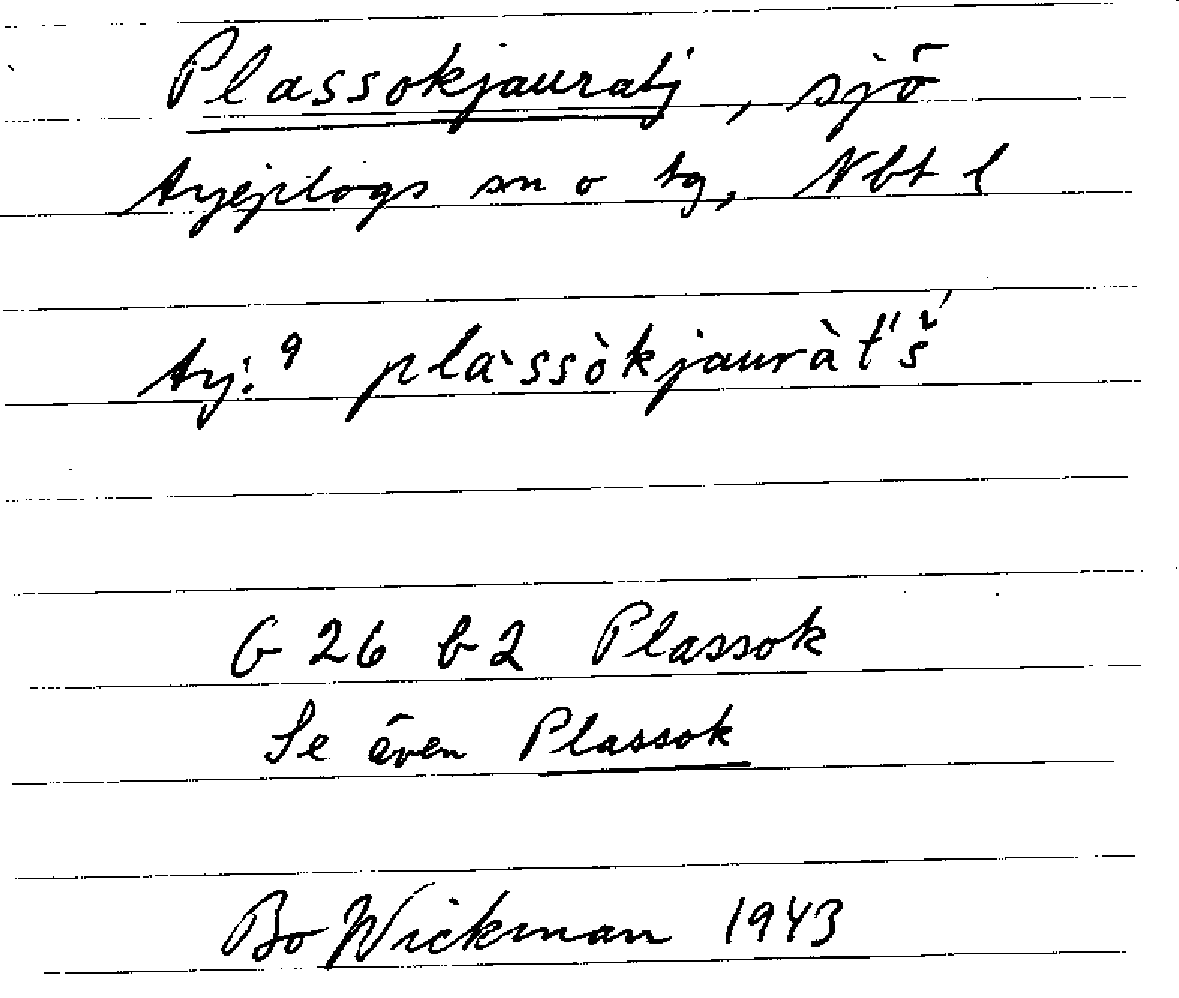 Plassokjauratj, sjö
Arjeplogs sn o tg, Nbt l
Arj. 9 plàssòkjauràt́'š́
G 26 b2 Plassok
Se även Plassok
Bo Wickman 1943